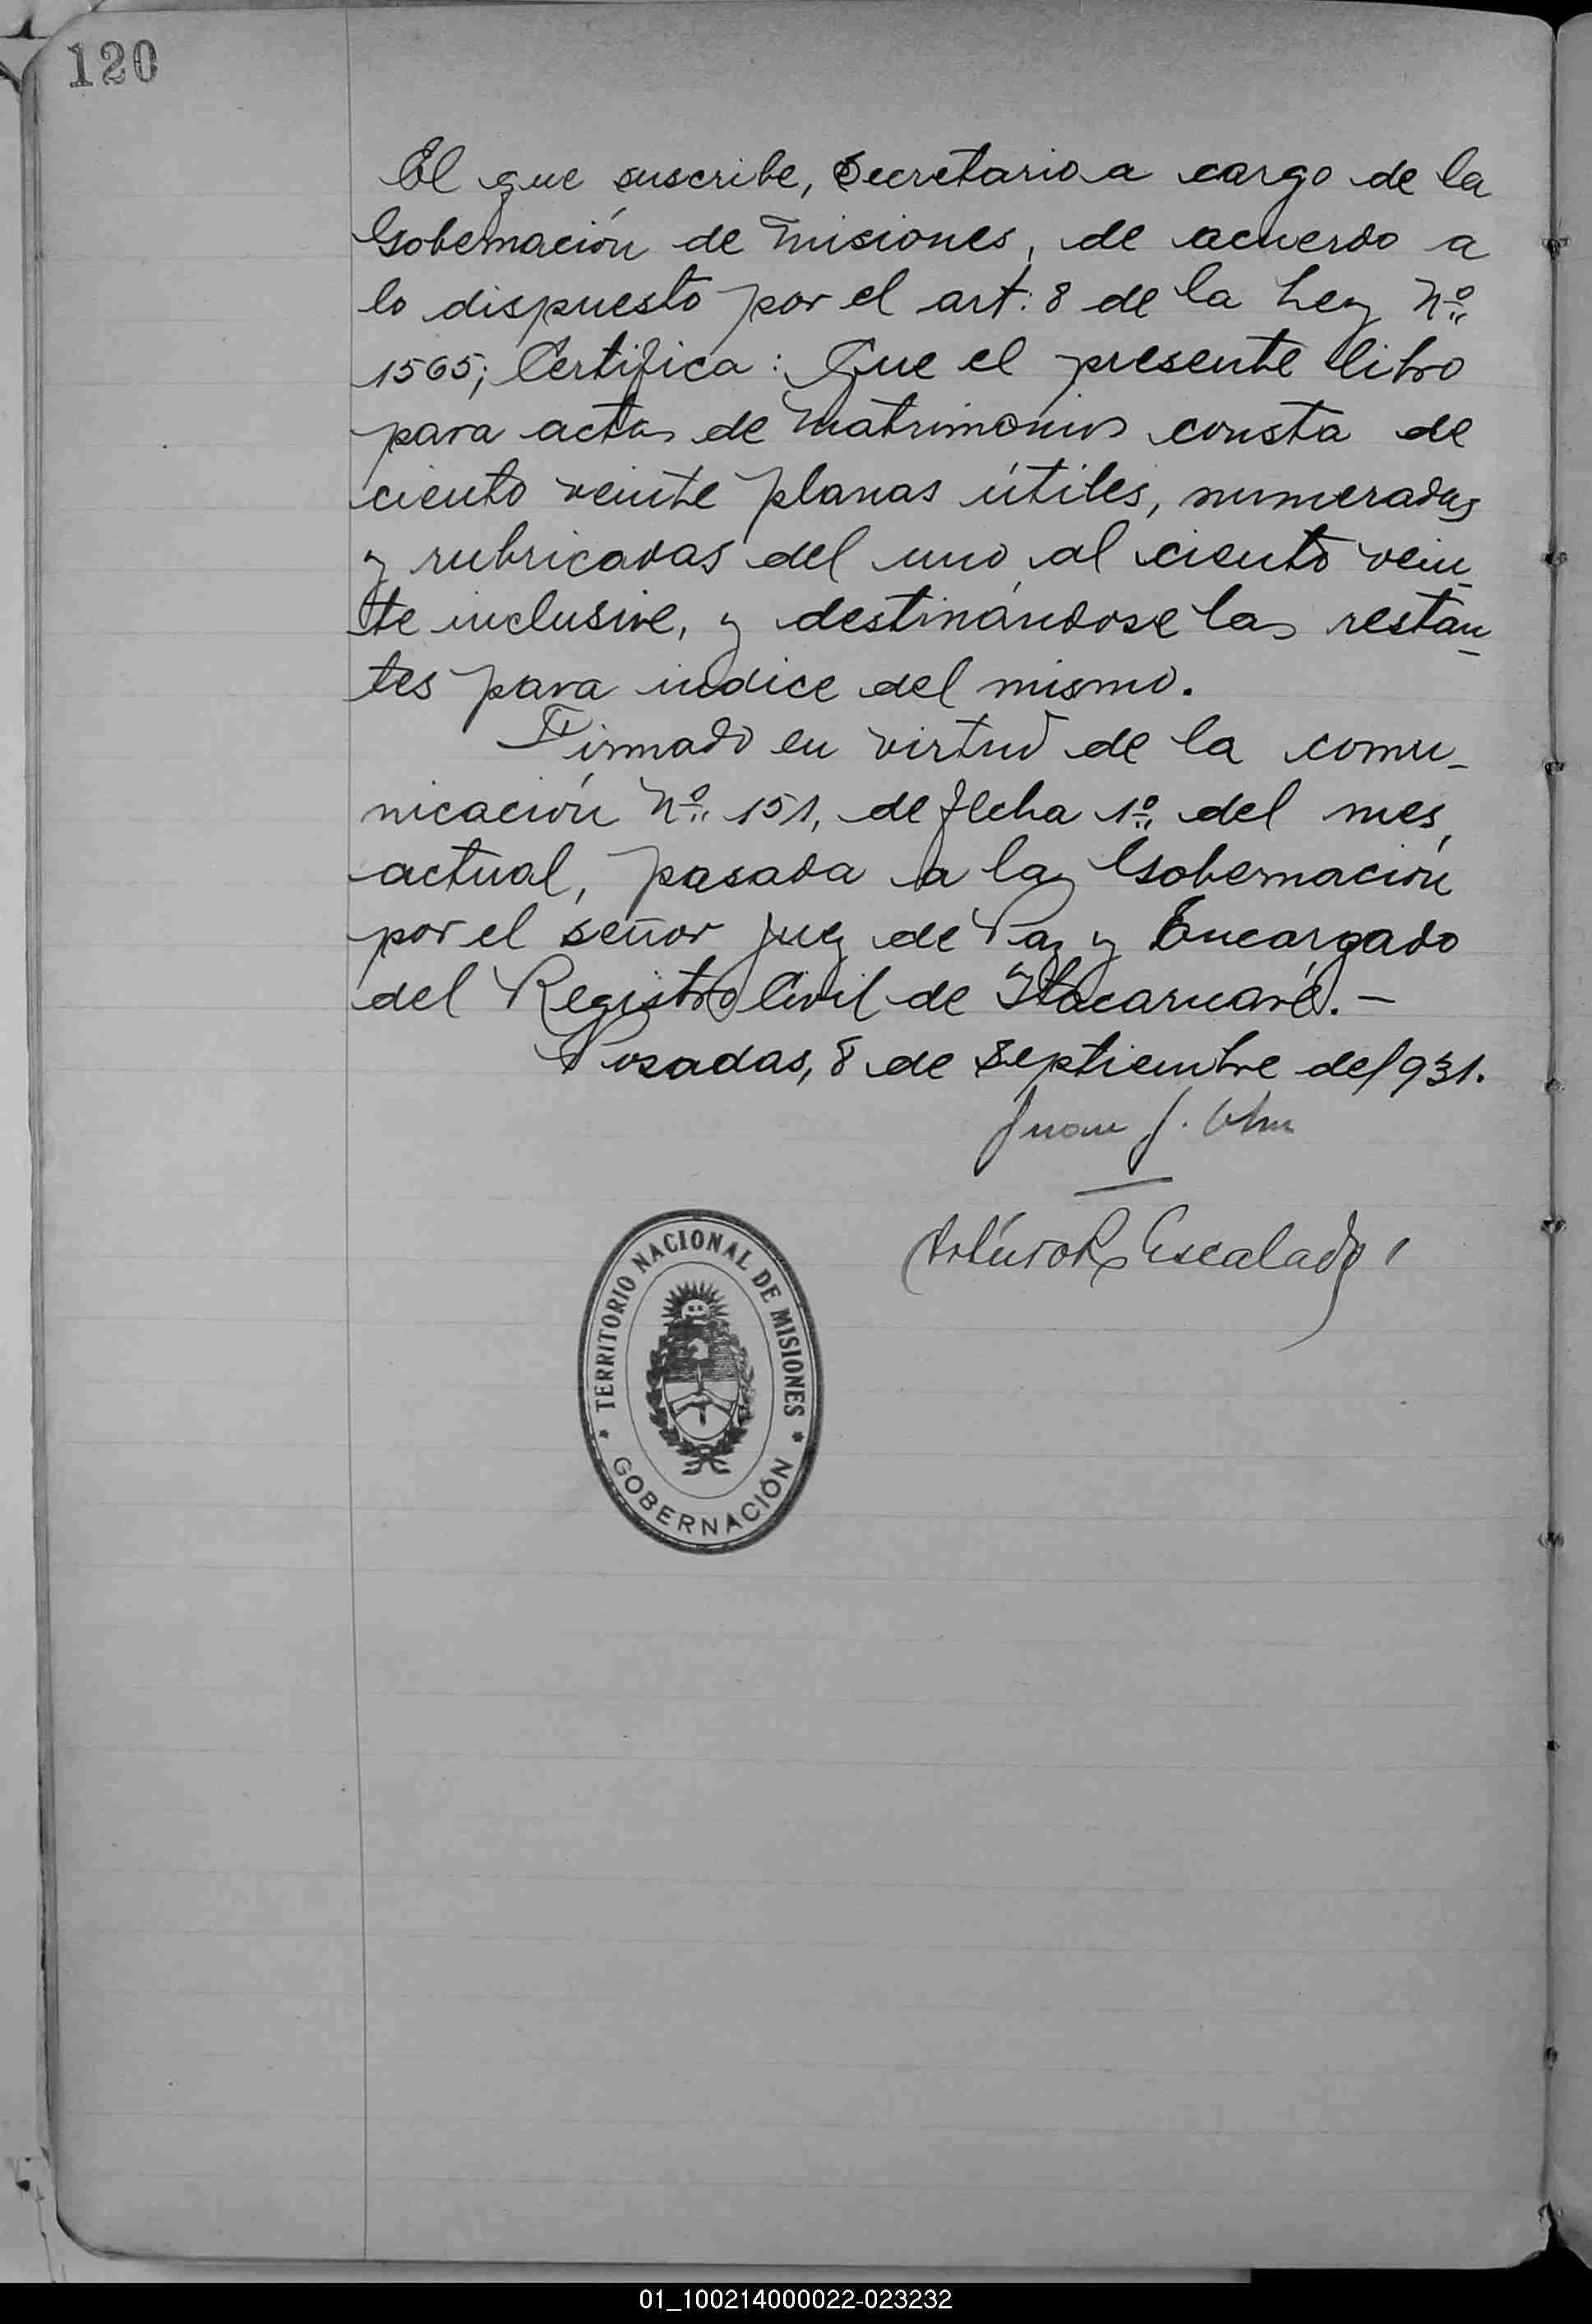 120
El que suscribe, Secretario a cargo de la
Gobernación de Misiones, de acuerdo a
lo dispuesto por el art: 8 de la Ley Nº
1565; Certifica: Que el presente libro
para actas de matrimonios consta de
ciento veinte planas útiles, numeradas
y rubricadas del uno al ciento vein-
te inclusive, y destinándose las restan-
tes para indice del mismo.
Firmado en virtud de la comu-
nicación Nº 151, de fecha 1º del mes
actual, pasada a la Gobernación
por el señor Juez de Paz y Encargado
del Registro Civil de Itacaruaré.-
Posadas, 8 de Septiembre de 1931.
Juan J.
Escalada
TERRITORIO NACIONAL DE MISIONES
GOBERNACIÓN
01_100214000022-023232